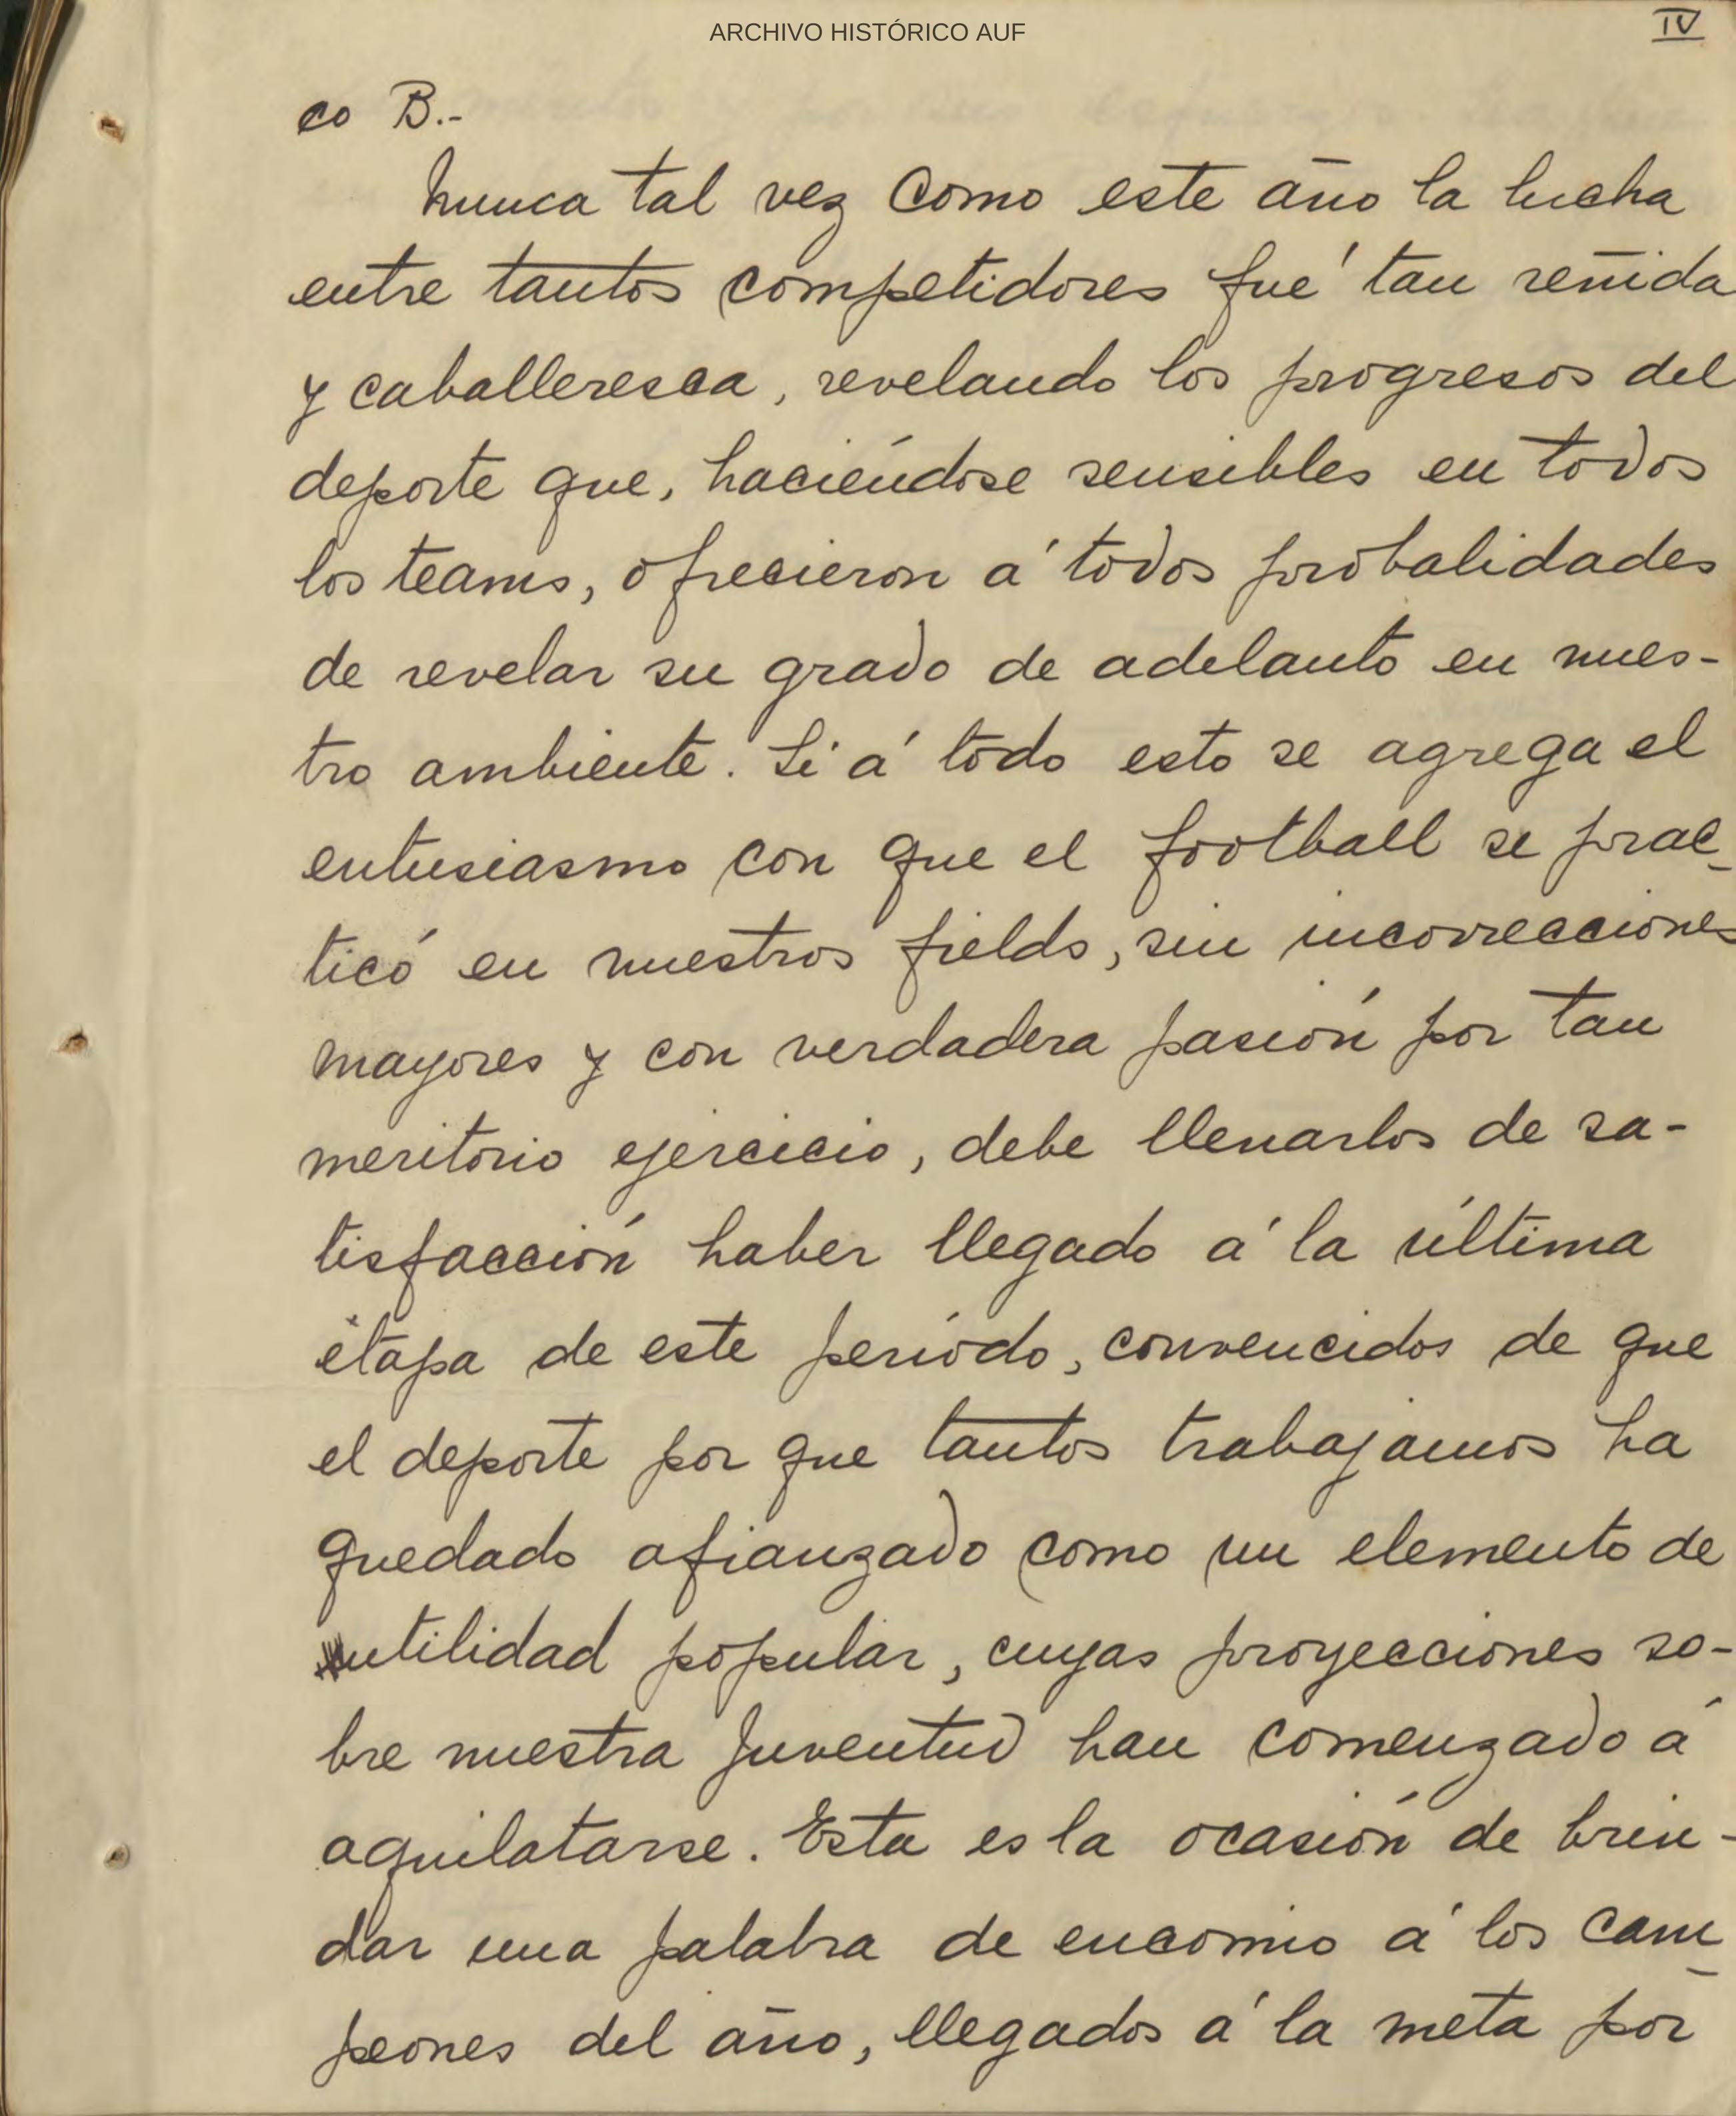 ARCHIVO HISTÓRICO AUF
IV
co B.-
Nunca tal vez como este año la lucha
entre tantos competidores fué tan reñida
y caballeresca, revelando los progresos del
deporte que, haciéndose sensibles en todos
los teams, ofrecieron á todos probalidades
de revelar su grado de adelanto en nues-
tro ambiente. Si á todo esto se agrega el
entusiasmo con que el football se prac-
ticó en nuestros fields, sin incorrecciones
mayores y con verdadera pasión por tan
meritorio ejercicio, debe llenarlos de sa-
tisfacción haber llegado á la última
etapa de este período, convencidos de que
el deporte por que tantos trabajamos ha
quedado afianzado como un elemento de
utilidad popular, cuyas proyecciones so-
bre nuestra juventud han comenzado á
aquilatarse. Esta es la ocasión de brin-
dar una palabra de encomio á los cam-
peones del año, llegados á la meta por